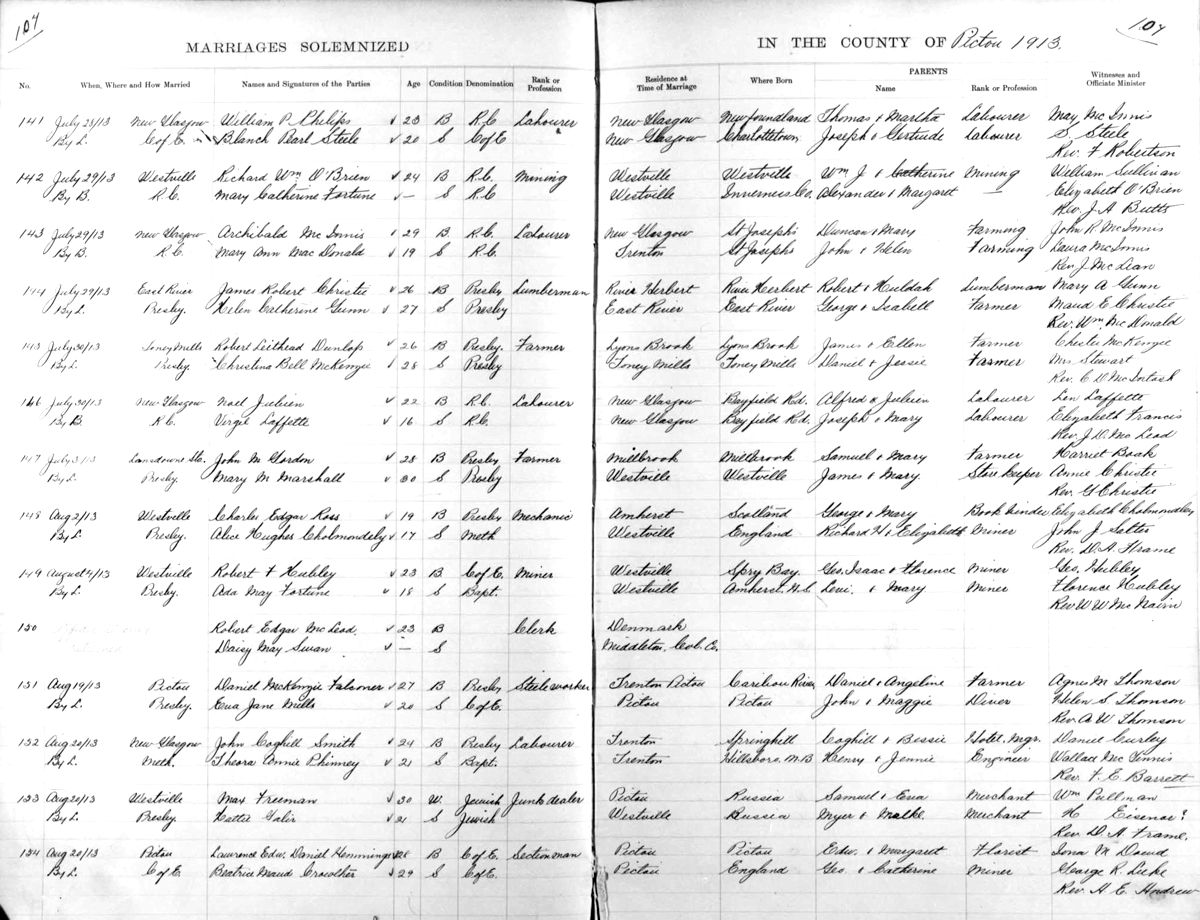 107
107
MARRIAGES SOLEMNIZED IN THE COUNTY OF Pictou 1913.
No. When, Where and How Married Names and Signatures of the Parties Age Condition Denomination Rank or Profession Residence at Time of Marriage Where Born PARENTS Name Rank or Profession Witnesses and Officiate Minister
141 July 28/13 New Glasgow William P. Philips 23 B R.C Labourer New Glasgow Newfoundland Thomas & Martha Labourer May McInnis
By L. C of E. Blanch Pearl Steele 20 S C of E New Glasgow Charlottetown Joseph & Gertrude Labourer S Steele
Rev. F Robertson
142 July 29/13 Westville Richard Wm O'Brien 24 B R.C Mining Westville Westville Wm J & Catherine Mining William Sullivan
By B. R.C. Mary Catherine Fortune — S R.C Westville Inverness Co. Alexander & Margaret — Elizabeth O'Brien
Rev. J. A Butts
143 July 29/13 New Glasgow Archibald McInnis 29 B. R.C. Labourer New Glasgow St Josephs Duncan & Mary Farming John R McInnis
By B. R.C. Mary Ann MacDonald 19 S R.C. Trenton St Josephs John & Helen Farming Laura McInnis
Rev J. McLean
144 July 29/13 East River James Robert Christie 26 B Presby Lumberman River Herbert River Herbert Robert & Huldah Lumberman Mary A Gunn
By L. Presby. Helen Catherine Gunn 27 S Presby East River East River George & Isabell Farmer Maud E Christie
Rev. Wm. McDonald
145 July 30/13 Toney Mills Robert Leithead Dunlop 26 B Presby. Farmer Lyons Brook Lyons Brook James & Ellen Farmer Chester McKenzie
By L. Presby. Christina Bell McKenzie 28 S Presby Toney Mills Toney Mills Daniel & Jessie Farmer Mrs Stewart
Rev. C. D. McIntosh
146 July 30/13 New Glasgow Noel Julien 22 B R.C. Labourer New Glasgow Bayfield Rd. Alfred & Julien Labourer Len Laffette
By B R.C. Virgie Laffette 16 S R.C. New Glasgow Bayfield Rd. Joseph & Mary Labourer Elizabeth Francis
Rev. J. D. McLeod
147 July 31/13 Lansdowne Sta. John M Gordon 28 B Presby Farmer Millbrook Millbrook Samuel & Mary Farmer Harriet Boak
By L. Presby. Mary M Marshall 30 S Presby Westville Westville James & Mary Store Keeper Annie Christie
Rev. G Christie
148 Aug 2/13 Westville Charles Edgar Ross 19 B Presby Mechanic Amherst Scotland George & Mary Book binder Elizabeth Cholmondeley
By L. Presby. Alice Hughes Cholmondely 17 S Meth Westville England Richard H & Elizabeth Miner John J
Rev. D. A. Frame
149 August 4/13 Westville Robert F Hubley 23 B. C of E. Miner Westville Spry Bay. Geo. Isaac & Florence Miner Geo. Hubley
By L. Presby. Ada May Fortune 18 S Bapt. Westville Amherst, N.S. Levi. & Mary Miner Florence Hubley
Rev W W McNairn
150 Robert Edgar McLeod. 23 B Clerk Denmark
Daisy May Swan — S Middleton, Col. Co.
151 Aug 19/13 Pictou Daniel McKenzie Falconer 27 B Presby Steelworker Trenton Pictou Caribou River Daniel & Angeline Farmer Agnes M Thomson
By L. Presby. Eva Jane Mills 20 S C of E. Pictou Pictou John & Maggie Diver Helen S Thomson
Rev. A W Thomson
152 Aug 20/13 New Glasgow John Coghill Smith 24 B Presby Labourer Trenton Springhill Coghill & Bessie Hotel Mgr. Daniel Curley
By L. Meth. Theora Annie Phinney 21 S Bapt. Trenton Hillsboro, N.B Henry & Jennie Engineer Wallace McGinnis
Rev. F. E. Barrett
153 Aug 20/13 Westville Max Freeman 30 W. Jewish Junk dealer Pictou Russia Samuel & Eva Merchant Wm Pullman
By L. Presby. Hattie Galir 21 S Jewish Westville Russia Myer & Malke. Merchant H Eisenor?
Rev. D. A. Frame.
154 Aug 20/13 Pictou Lawrence Edw. Daniel Hemmings 28 B C of E. Section man Pictou Pictou Edw. & Margaret Florist Iona M Doud
By L. C of E. Beatrice Maud Crowther 29 S C of E. Pictou England Geo. & Catherine Miner George R. Luke
Rev. A. E. Andrew